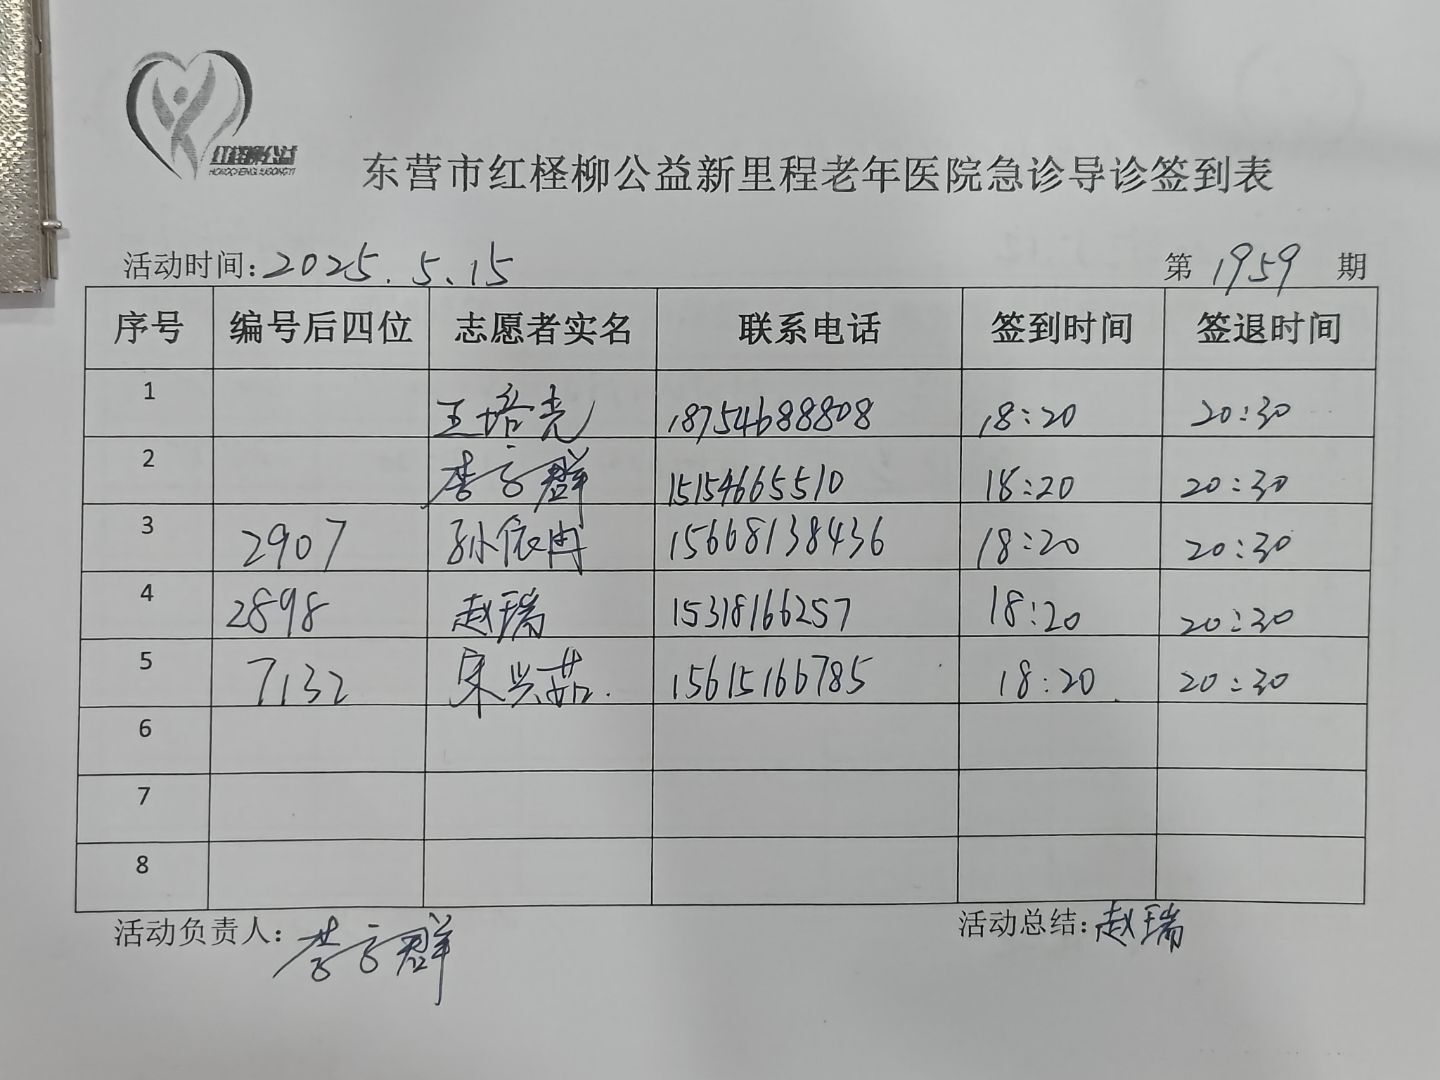 红柽柳公益
HONGCHENGLIUGONGYI
东营市红柽柳公益新里程老年医院急诊导诊签到表
活动时间:2025.5.15 第1959期
序号 编号后四位 志愿者实名 联系电话 签到时间 签退时间
1 王培尧 18754688808 18:20 20:30
2 李 群 15154665510 18:20 20:30
3 2907 孙依冉 15668138436 18:20 20:30
4 2898 赵瑞 15318166257 18:20 20:30
5 7132 宋兴茹. 15615166785 18:20 20:30
6
7
8
活动负责人: 李 群 活动总结:赵瑞